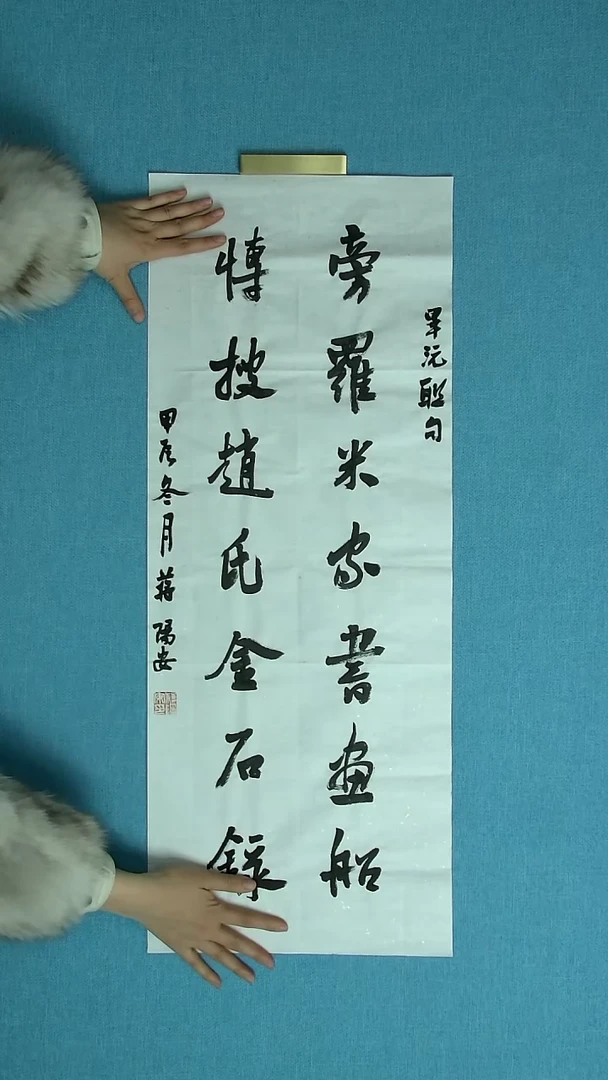 畢沅聯句
旁羅米家書畫船
博搜趙氏金石錄
甲辰冬月蔣陽安